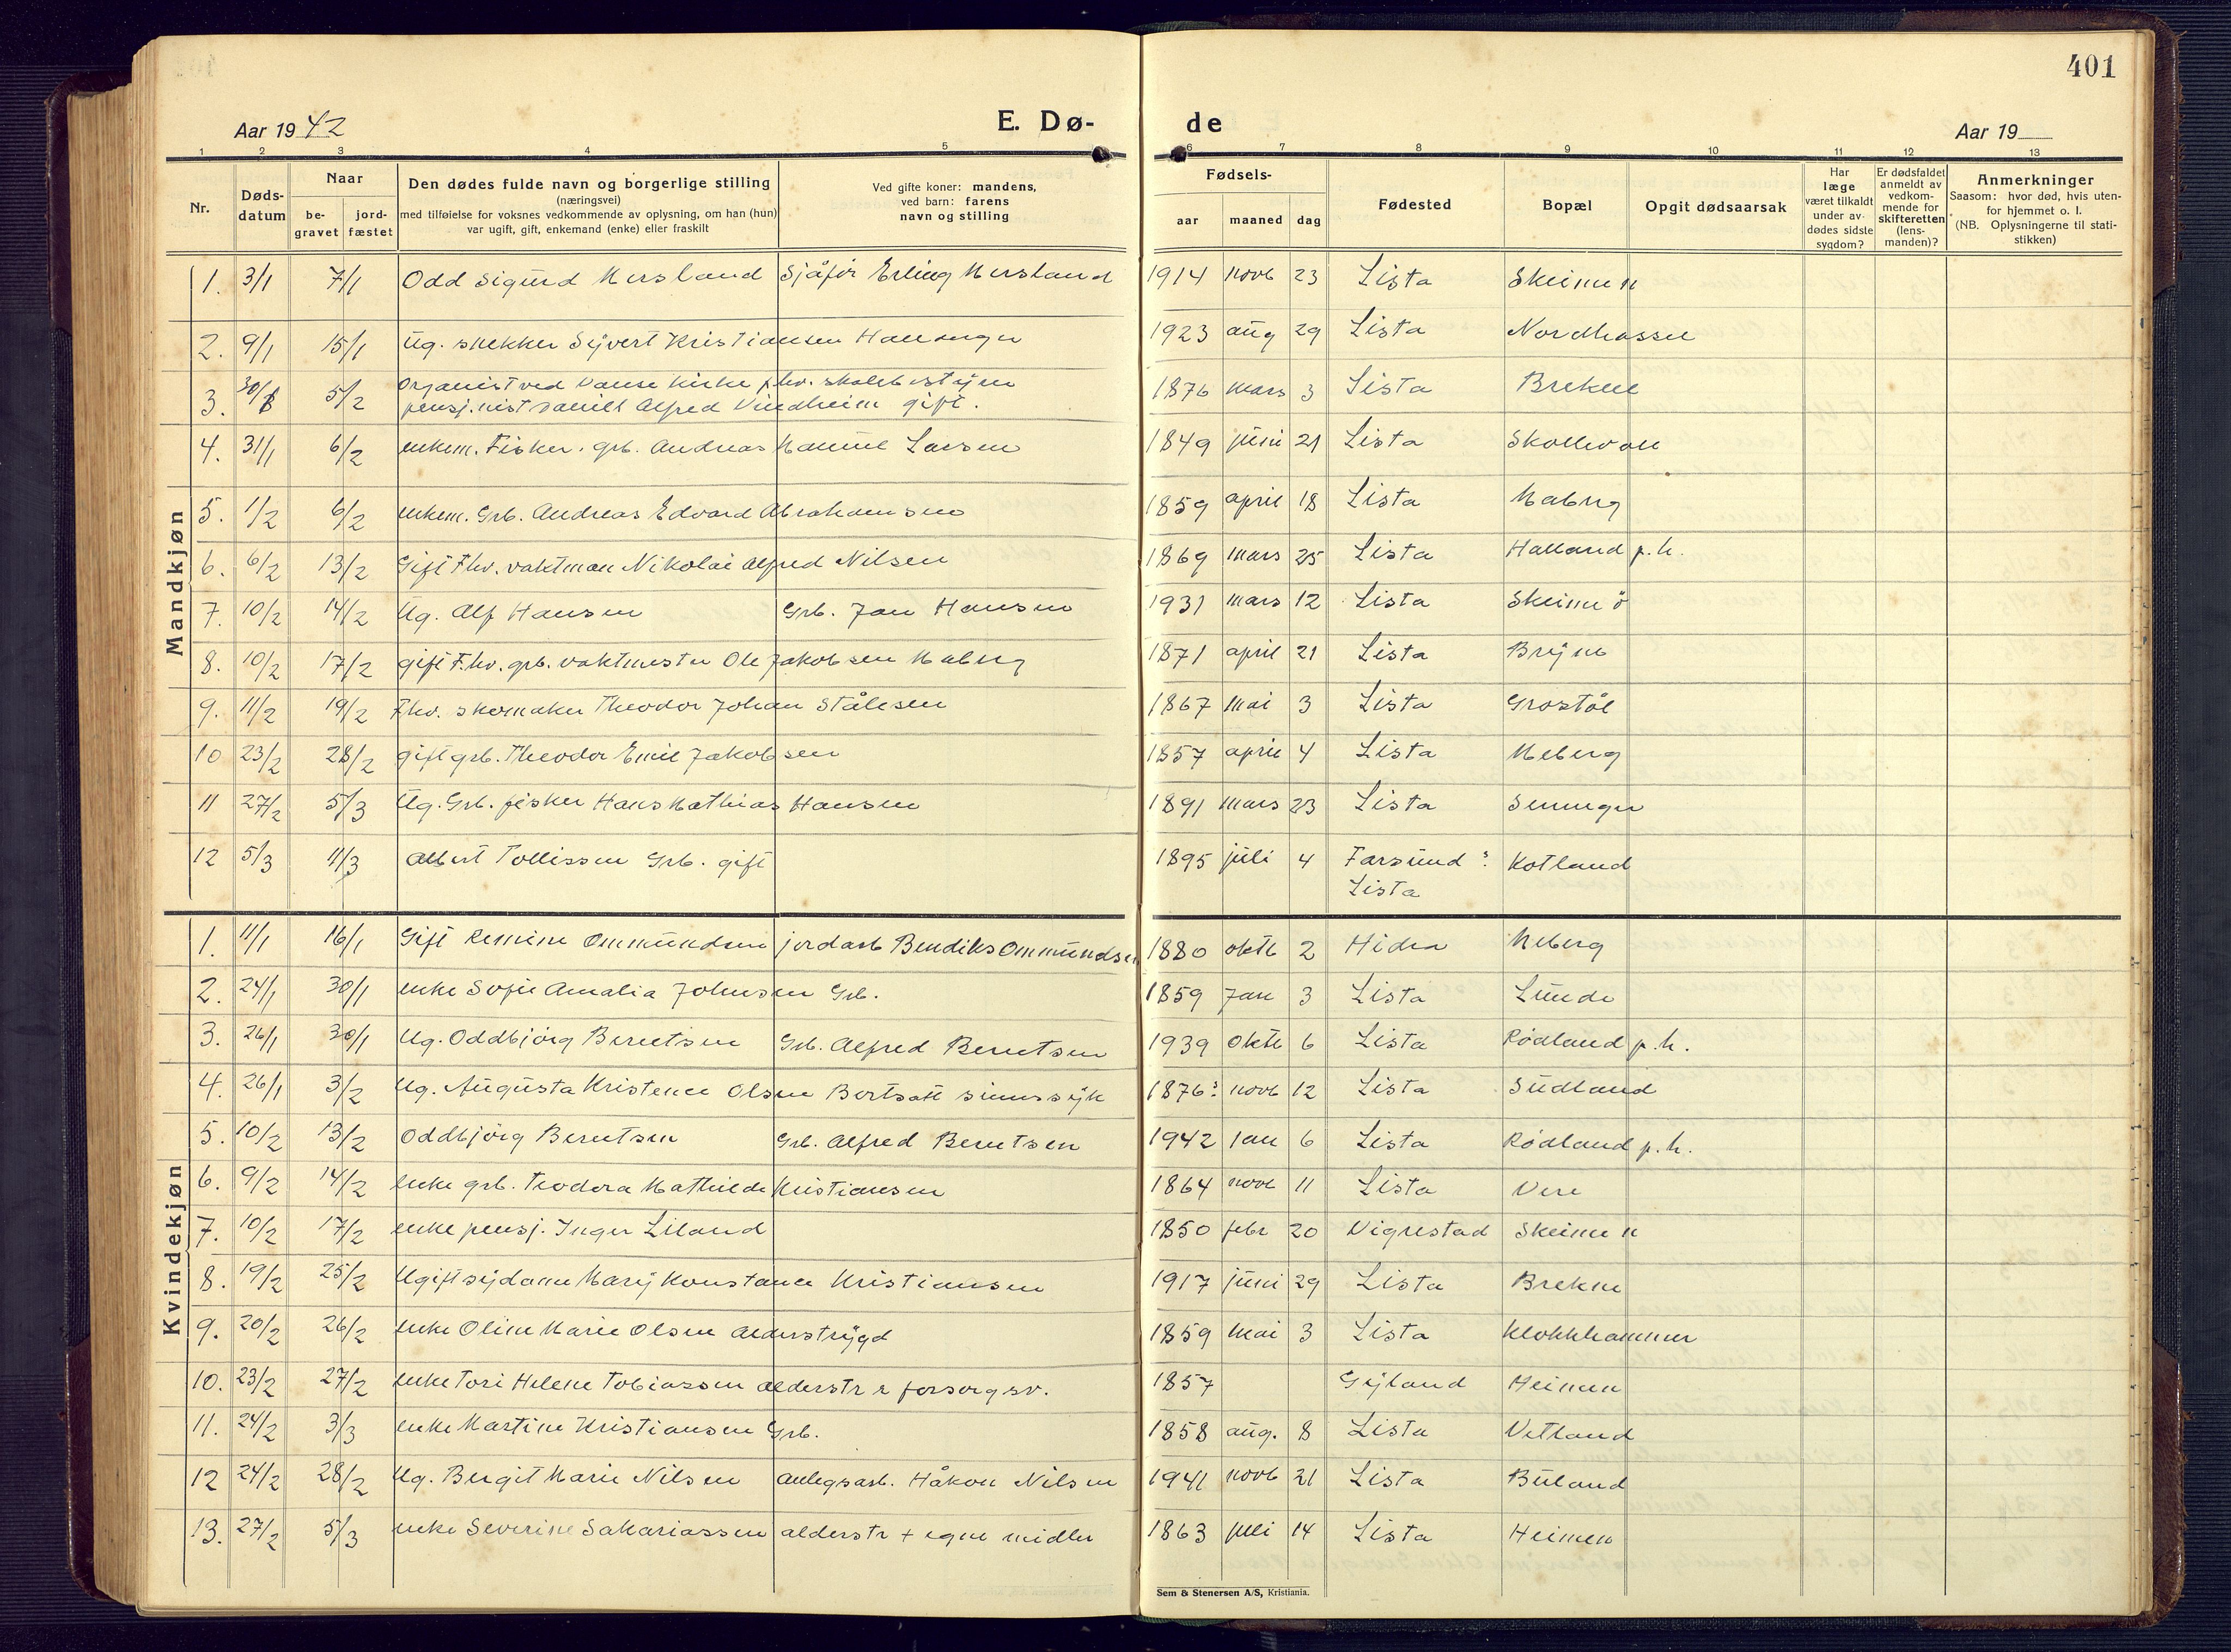 401
Aar 19 42
E. Dø-
de
Aar 19
1 2 3 4 5 6 7 8 9 10 11 12 13
Nr.
Døds-
datum
Naar
be-
gravet
jord-
fæstet
Den dødes fulde navn og borgerlige stilling
(næringsvei)
med tilføielse for voksnes vedkommende av oplysning, om han (hun)
var ugift, gift, enkemand (enke) eller fraskilt
Ved gifte koner: mandens,
ved barn: farens
navn og stilling
Fødsels-
aar maaned dag
Fødested
Bopæl
Opgit dødsaarsak
Har
læge
været tilkaldt
under av-
dødes sidste
sygdom?
Er dødsfaldet
anmeldt av
vedkom-
mende for
skifteretten
(lens-
manden)?
Anmerkninger
Saasom: hvor død, hvis uten-
for hjemmet o. l.
(NB. Oplysningerne til stati-
stikken)
Mandkjøn
1. 3/1 7/1 Odd Sigurd Mersland Sjåfør Erling Mersland 1914 novb 23 Lista Skeime n
2. 9/1 15/1 Ug. snekker Syvert Kristiansen Hananger 1923 aug 29 Lista Nordhassel
3. 30/1 5/2 Organist ved Vanse Kirke fhv. skolebestyrer
pensjonist Daniel Alfred Vindheim gift. 1876 mars 3 Lista Brekne
4. 31/1 6/2 enkem. Fisker. grb. Andreas Manne Larsen 1849 juni 21 Lista Skollevoll
5. 1/2 6/2 enkem. Grb. Andreas Edvard Abrahamsen 1859 april 18 Lista Maberg
6. 6/2 13/2 Gift Fhv. vaktman Nikolai Alfred Nilsen 1869 mars 25 Lista Halland p.h.
7. 10/2 14/2 Ug. Alf Hansen Grb. Jan Hansen 1931 mars 12 Lista Skeime ö
8. 10/2 17/2 gift F.hv. grb. vaktmester Ole Jakobsen Maberg 1871 april 21 Lista Bryne
9. 11/2 19/2 Fhv. skomaker Theodor Johan Stålesen 1867 mai 3 Lista Grostøl
10 23/2 28/2 gift grb. Theodor Emil Jakobsen 1857 april 4 Lista Meberg
11 27/2 5/3 Ug. Grb. fisker Hans Mathias Hansen 1891 mars 23 Lista Sennger
12 5/3 11/3 Albert Tollissen Grb. gift 1895 juli 4 Farsund ? Kotland
Lista
Kvindekjøn
1. 11/1 16/1 Gift Remine Ommundsen jordarb Bendiks Ommundsen 1880 oktb 2 Hidra Meberg
2. 24/1 30/1 enke Sofie Amalia Johnsen Grb. 1859 Jan 3 Lista Lunde
3. 26/1 30/1 Ug. Oddbjörg Berntsen Grb. Alfred Berntsen 1939 Oktb 6 Lista Rødland p.h.
4. 26/1 3/2 Ug. Augusta Kristence Olsen Bortsatt sinnssyk 1876? novb 12 Lista Sudland
5. 10/2 13/2 Oddbjörg Berntsen Grb. Alfred Berntsen 1942 Jan 6 Lista Rødland p.h.
6. 9/2 14/2 enke grb. Teodora Mathilde Kristiansen 1864 novb 11 Lista Vere
7. 10/2 17/2 enke pensj. Inger Liland 1850 febr 20 Vigrestad Skeime n
8. 19/2 25/2 Ugift sydame Mary Konstanse Kristiansen 1917 juni 29 Lista Brekne
9. 20/2 26/2 enke Oline Marie Olsen Alderstrygd 1859 mai 3 Lista Klokkhammer
10. 23/2 27/2 enke Tori Helene Tobiassen alderstr & forsorgsv. 1857 Gyland Heimen
11. 24/2 3/3 enke Martine Kristiansen Grb. 1858 aug. 8 Lista Vetland
12 24/2 28/2 Ug. Bergit Marie Nilsen anlegsarb. Håkon Nilsen 1941 novb 21 Lista Buland
13. 27/2 5/3 enke Severine Sakariassen alderstr + egne midler 1863 juli 14 Lista Heimen
Sem & Stenersen A/S, Kristiania.